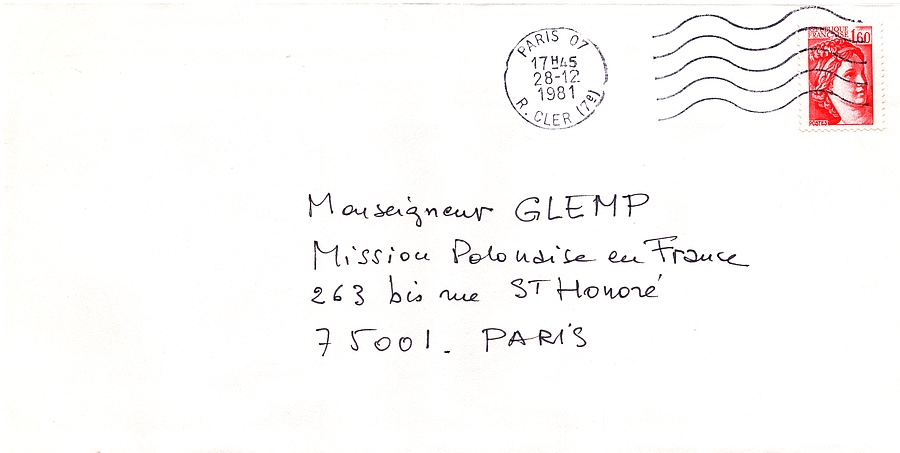 PARIS 07
17H45
28-12
1981
R. CLER (7e)
REPUBLIQUE
FRANCAISE 1,60
POSTES
Monseigneur GLEMP
Mission Polonaise en France
263 bis rue ST Honoré
75001. PARIS